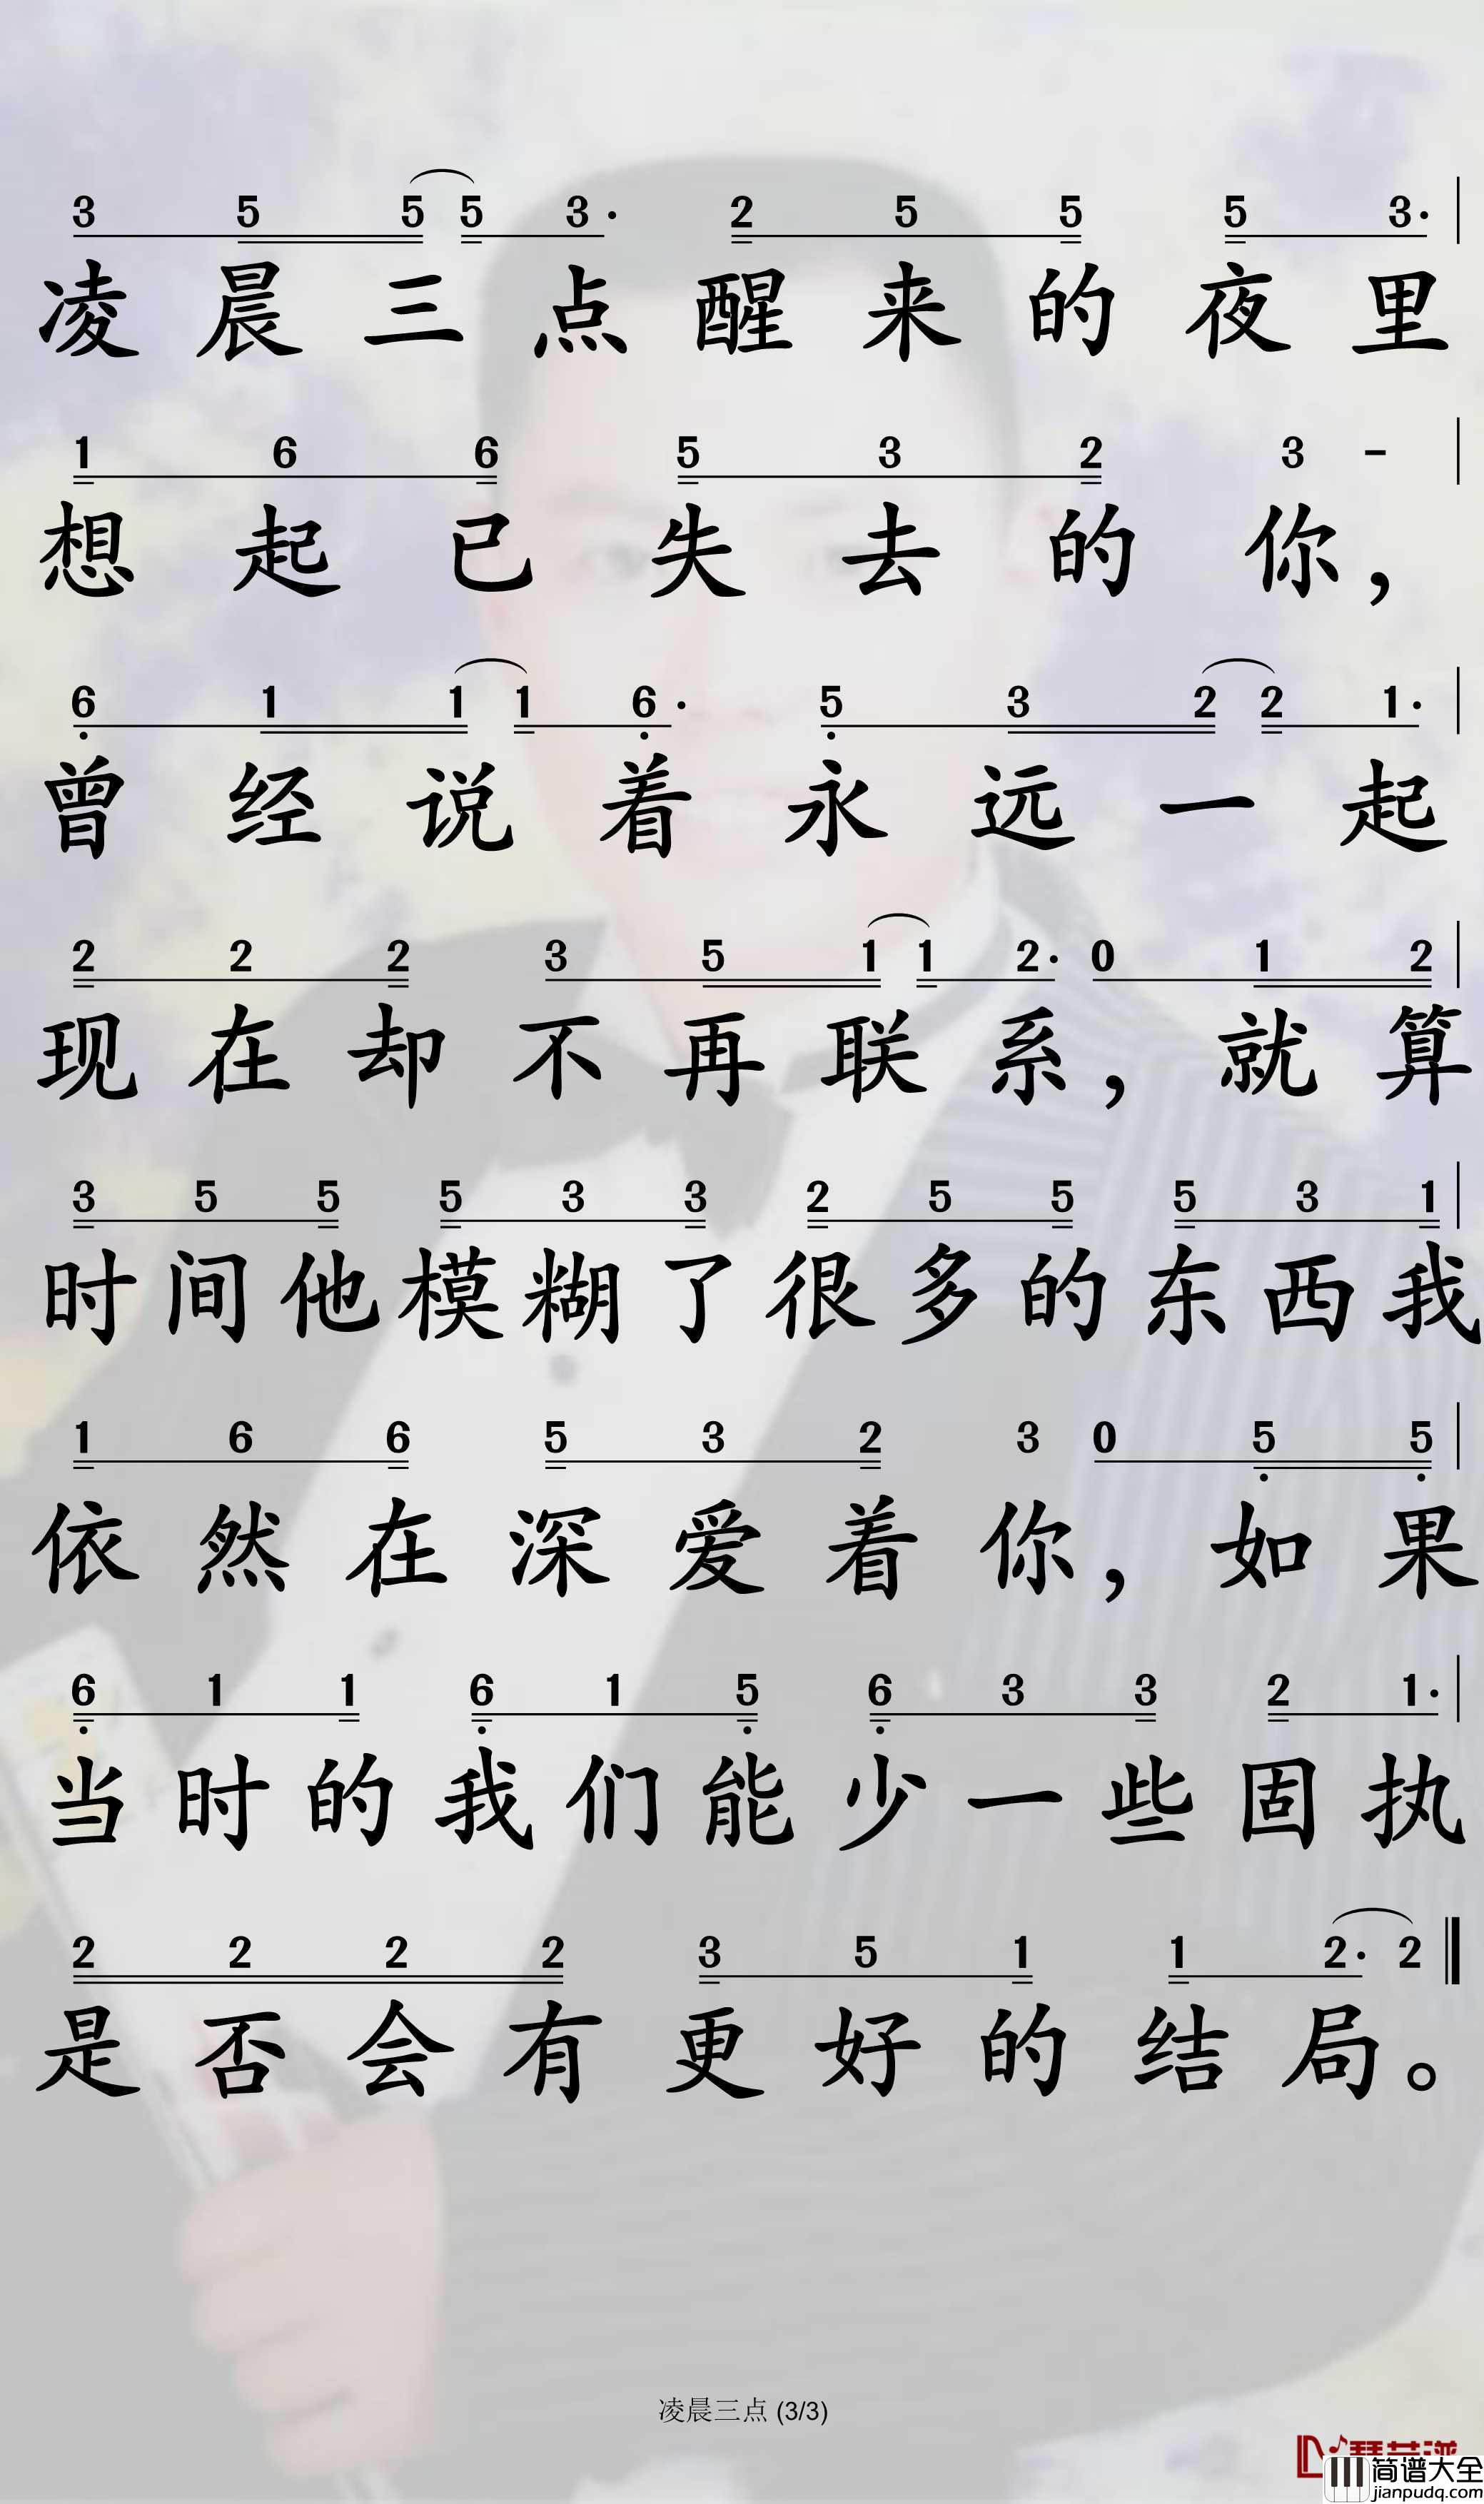 3 5 5 5 3· 2 5 5 5 3·
凌晨三点醒来的夜里
1 6 6 5 3 2 3 -
想起已失去的你，
6 1 1 1 6· 5 3 2 2 1·
曾经说着永远一起
2 2 2 3 5 1 1 2· 0 1 2
现在却不再联系，就算
3 5 5 5 3 3 2 5 5 5 3 1
时间他模糊了很多的东西我
1 6 6 5 3 2 3 0 5 5
依然在深爱着你，如果
6 1 1 6 1 5 6 3 3 2 1·
当时的我们能少一些固执
2 2 2 2 3 5 1 1 2· 2
是否会有更好的结局。
凌晨三点 (3/3)
简谱大全
jianpudq.com